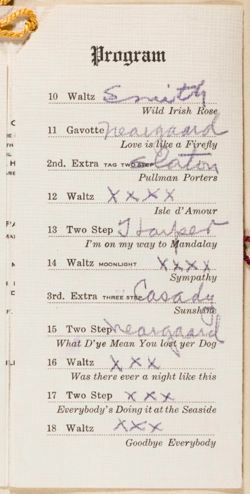 Program
10 Waltz Smith
Wild Irish Rose
11 Gavotte Neargaard
Love is like a Firefly
2nd. Extra TAG TWO STEP Claton
Pullman Porters
12 Waltz XXXX
Isle d'Amour
13 Two Step T Harper
I'm on my way to Mandalay
14 Waltz MOONLIGHT XXXX
Sympathy
3rd. Extra THREE STEP Casady
Sunshine
15 Two Step Neargaard
What D'ye Mean You lost yer Dog
16 Waltz XXX
Was there ever a night like this
17 Two Step XXX
Everybody's Doing it at the Seaside
18 Waltz XXX
Goodbye Everybody